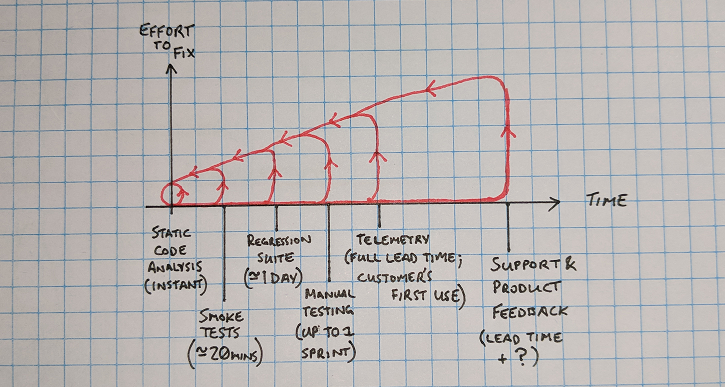 EFFORT
TO
FIX
TIME
STATIC
CODE
ANALYSIS
(INSTANT)
SMOKE
TESTS
(≃20MINS)
REGRESSION
SUITE
(≃1DAY)
MANUAL
TESTING
(UP TO 1
SPRINT)
TELEMETRY
(FULL LEAD TIME;
CUSTOMER'S
FIRST USE)
SUPPORT &
PRODUCT
FEEDBACK
(LEAD TIME
+ ?)